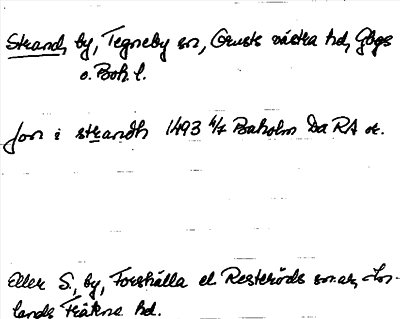 Strand, by, Tegneby sn, Orusts västra hd, Gbgs
o. Boh. l.
Jon i strandh 1493 4/7 Baholm Da RA or.
Eller S., by, Forshälla el. Resteröds snar, In-
lands Fräkne hd.